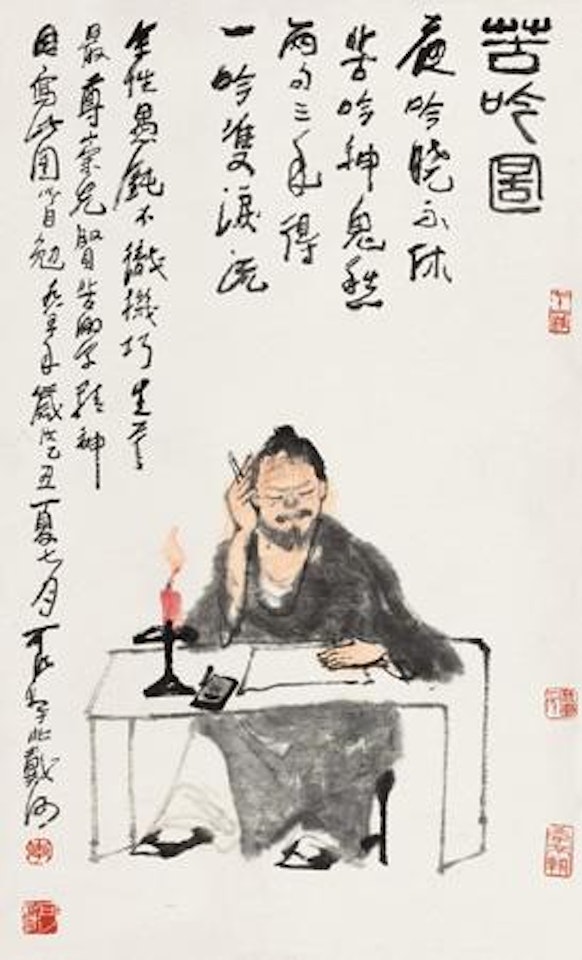 苦吟圖
夜吟曉不休
苦吟神鬼愁
兩句三年得
一吟雙淚流
余性愚鈍不識機巧生平
最尊崇先賢苦學精神
因寫此圖以自勉 年歲次乙丑夏七月可染於北戴河